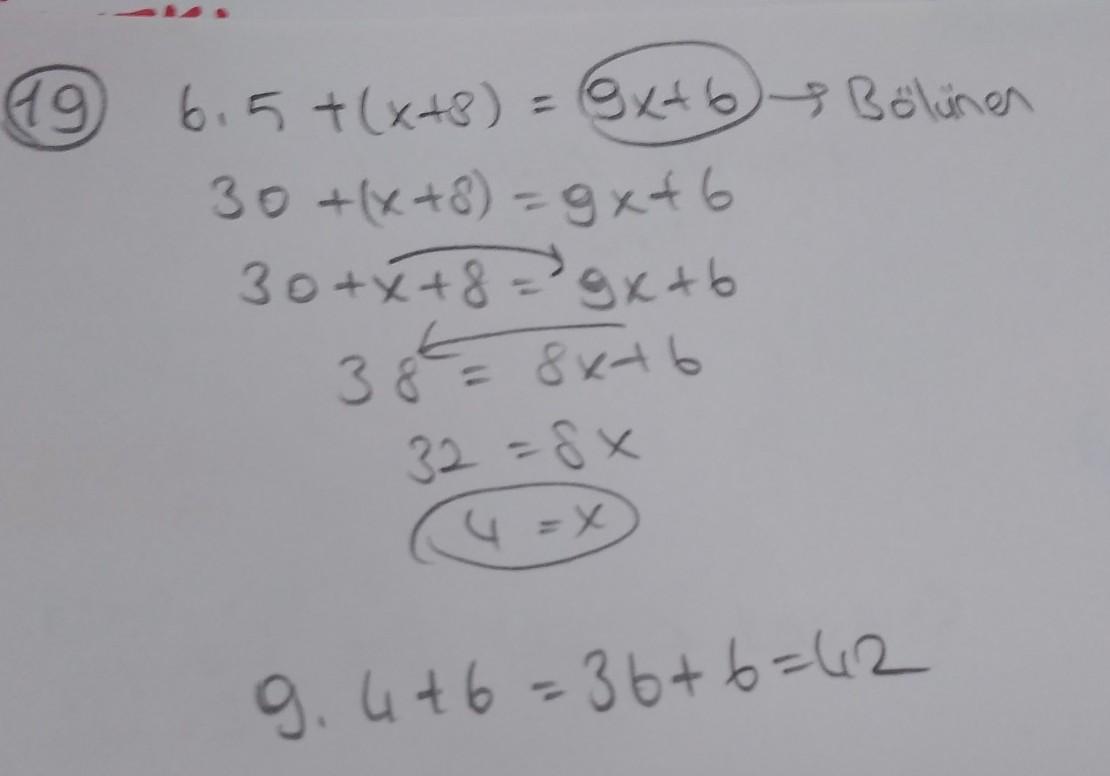 19 6.5 +(x+8) = 9x+6 → Bölünen
30 +(x+8) = 9x+6
30+x+8 = 9x+6
38 = 8x+6
32 = 8x
4 = x
9.4+6 = 36+6=42